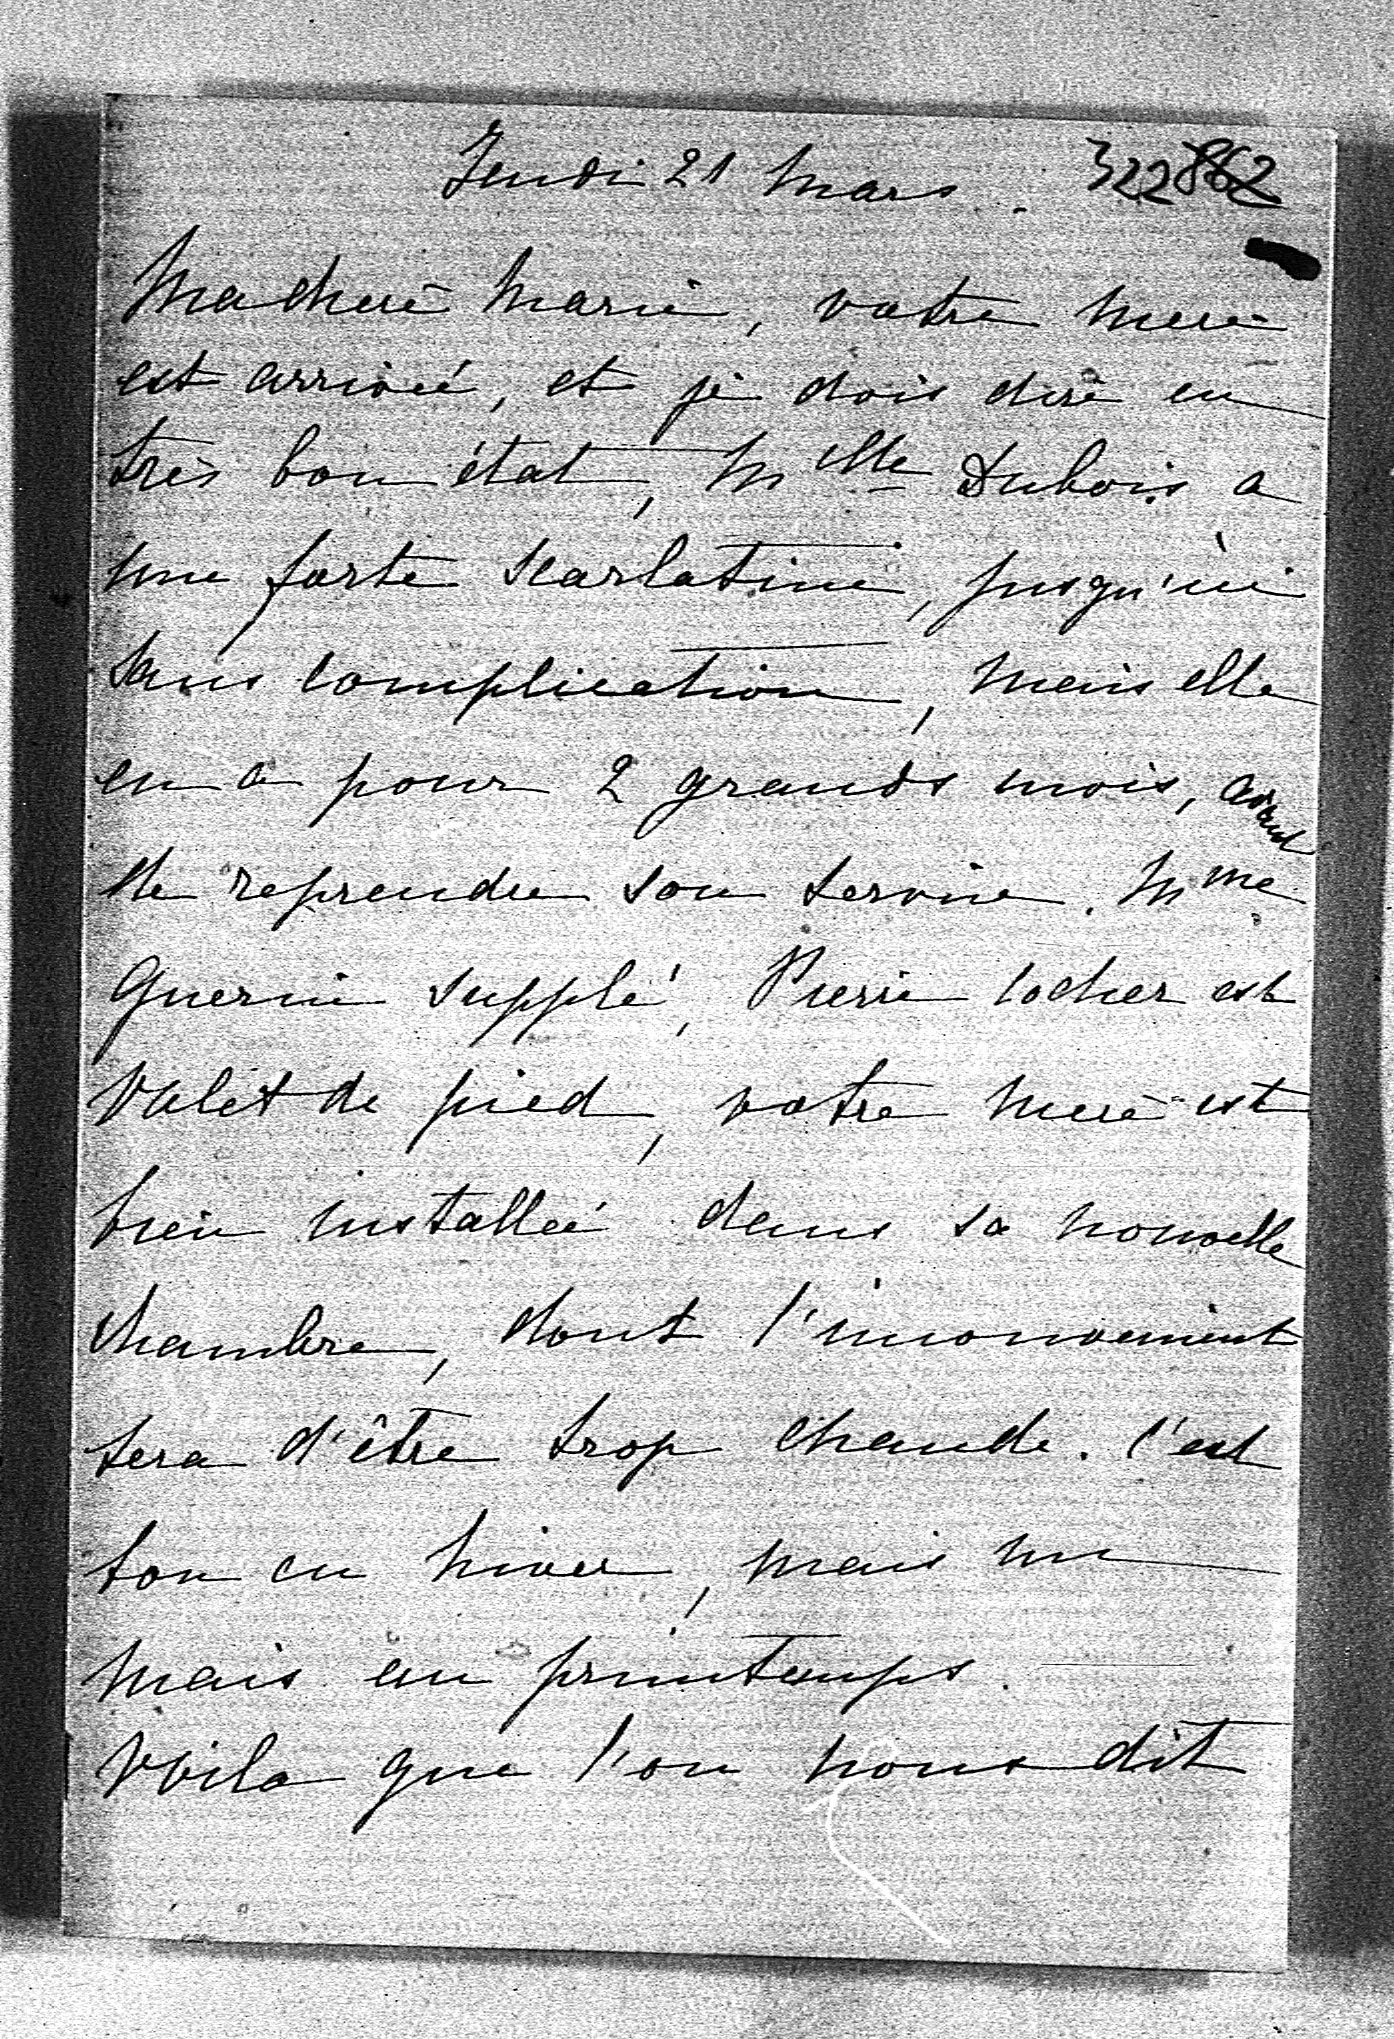 Jeudi 21 Mars. 322 862
Ma chère Marie, votre mère
est arrivée, et je dois dire en
très bon état, Mlle Dubois a
une forte scarlatine, jusqu'ici
sans complication, mais elle
en a pour 2 grands mois, avant
de reprendre son service. Mme
Guerin supplé, Pierre Cocher est
valet de pied, votre mère est
bien installée dans sa nouvelle
chambre, dont l'inconvénient
sera d'être trop chaude. C'est
bon en hiver, mais un
mais au printemps.
Voila que l'on nous dit